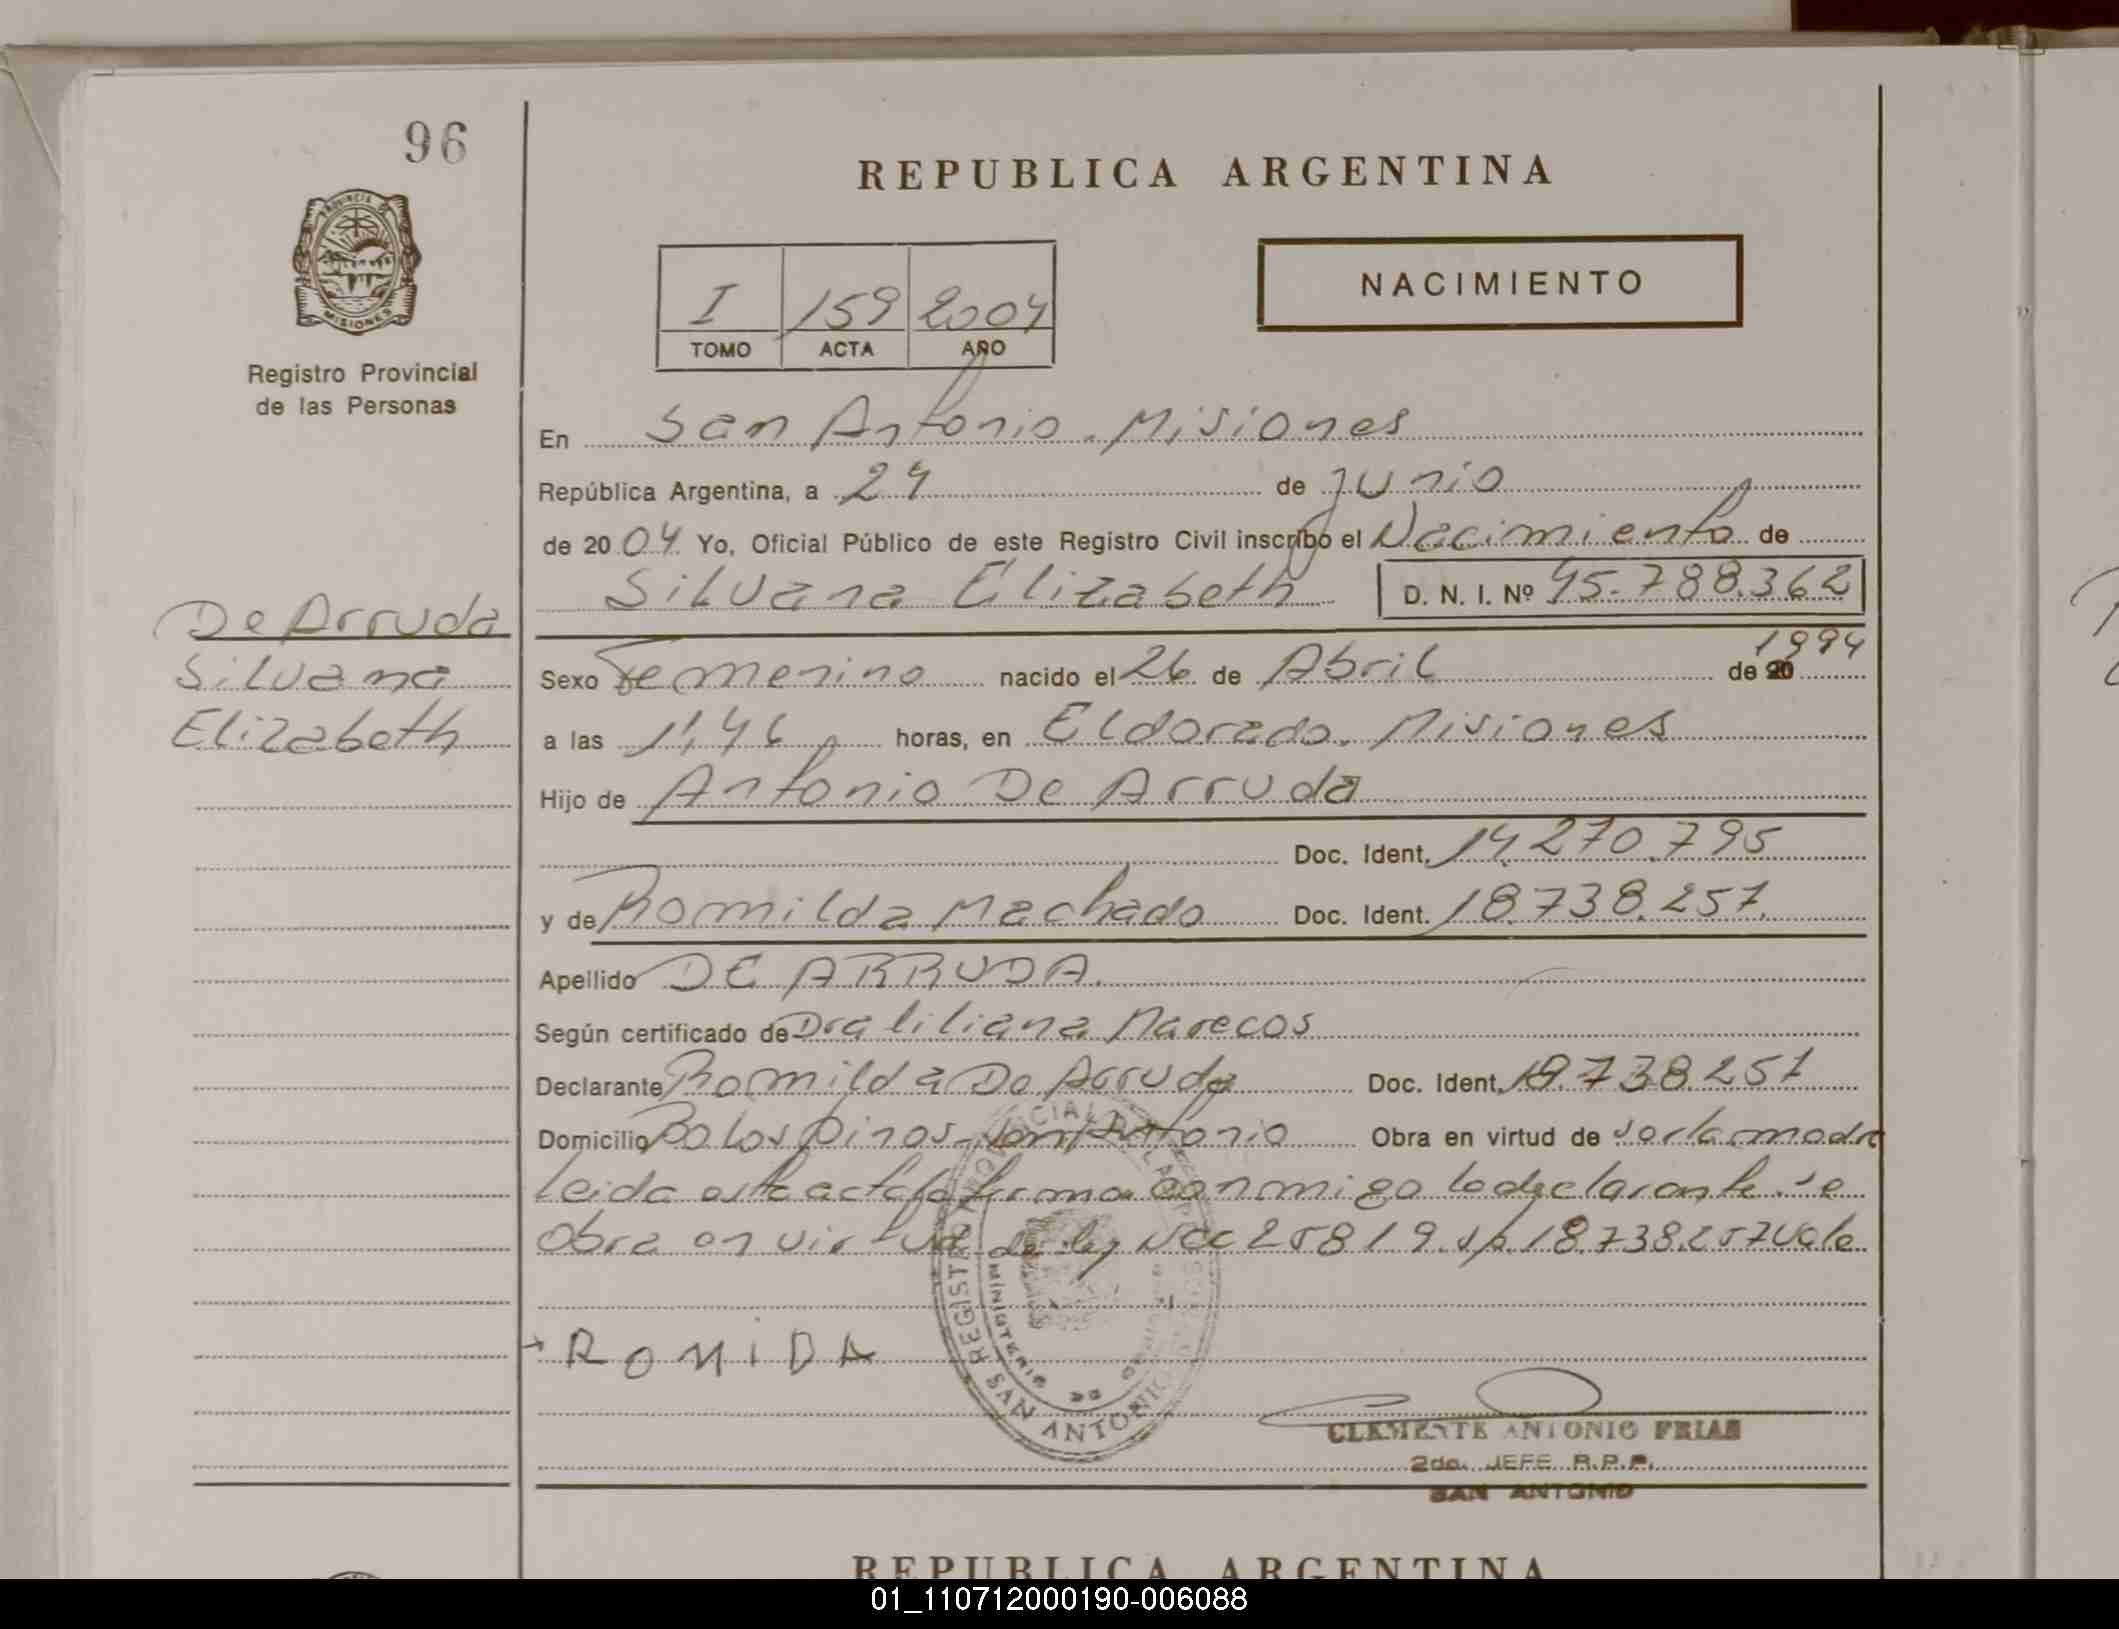 96
REPUBLICA ARGENTINA
PROVINCIA DE
MISIONES
Registro Provincial
de las Personas
I 159 2004
TOMO ACTA AÑO
NACIMIENTO
En San Antonio. Misiones
República Argentina, a 24 de Junio
de 2004 Yo, Oficial Público de este Registro Civil inscribo el Nacimiento de
Silvana Elizabeth D. N. I. Nº 45.788.362
De Arruda
Silvana
Elizabeth
Sexo Femenino nacido el 26 de Abril de 20 1994
a las 1,46 horas, en Eldorado. Misiones
Hijo de Antonio De Arruda
Doc. Ident. 14.270.795
y de Romilda Machado Doc. Ident. 18.738.257
Apellido DE ARRUDA.
Según certificado de Dra liliana Marecos
Declarante Romilda De Arruda Doc. Ident. 18.738.257
Domicilio Bo Los Pinos - San Antonio Obra en virtud de ser la madre
leida esta acta la firma conmigo la declarante. se
obra en virtud de ley 25819. s/p. 18.738.257 Vale
ROMIDA
REGISTRO PROVINCIAL DE LAS PERSONAS
MINISTERIO DE GOBIERNO
SAN ANTONIO
CLEMENTE ANTONIO FRIAS
2do. JEFE R.P.P.
SAN ANTONIO
REPUBLICA ARGENTINA
01_110712000190-006088